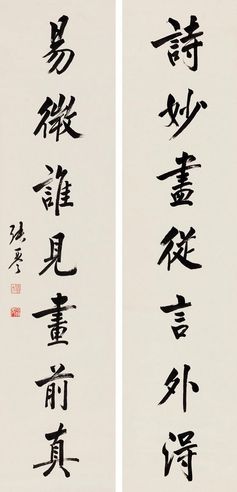 詩妙盡從言外得
易微誰見畫前真
張琴